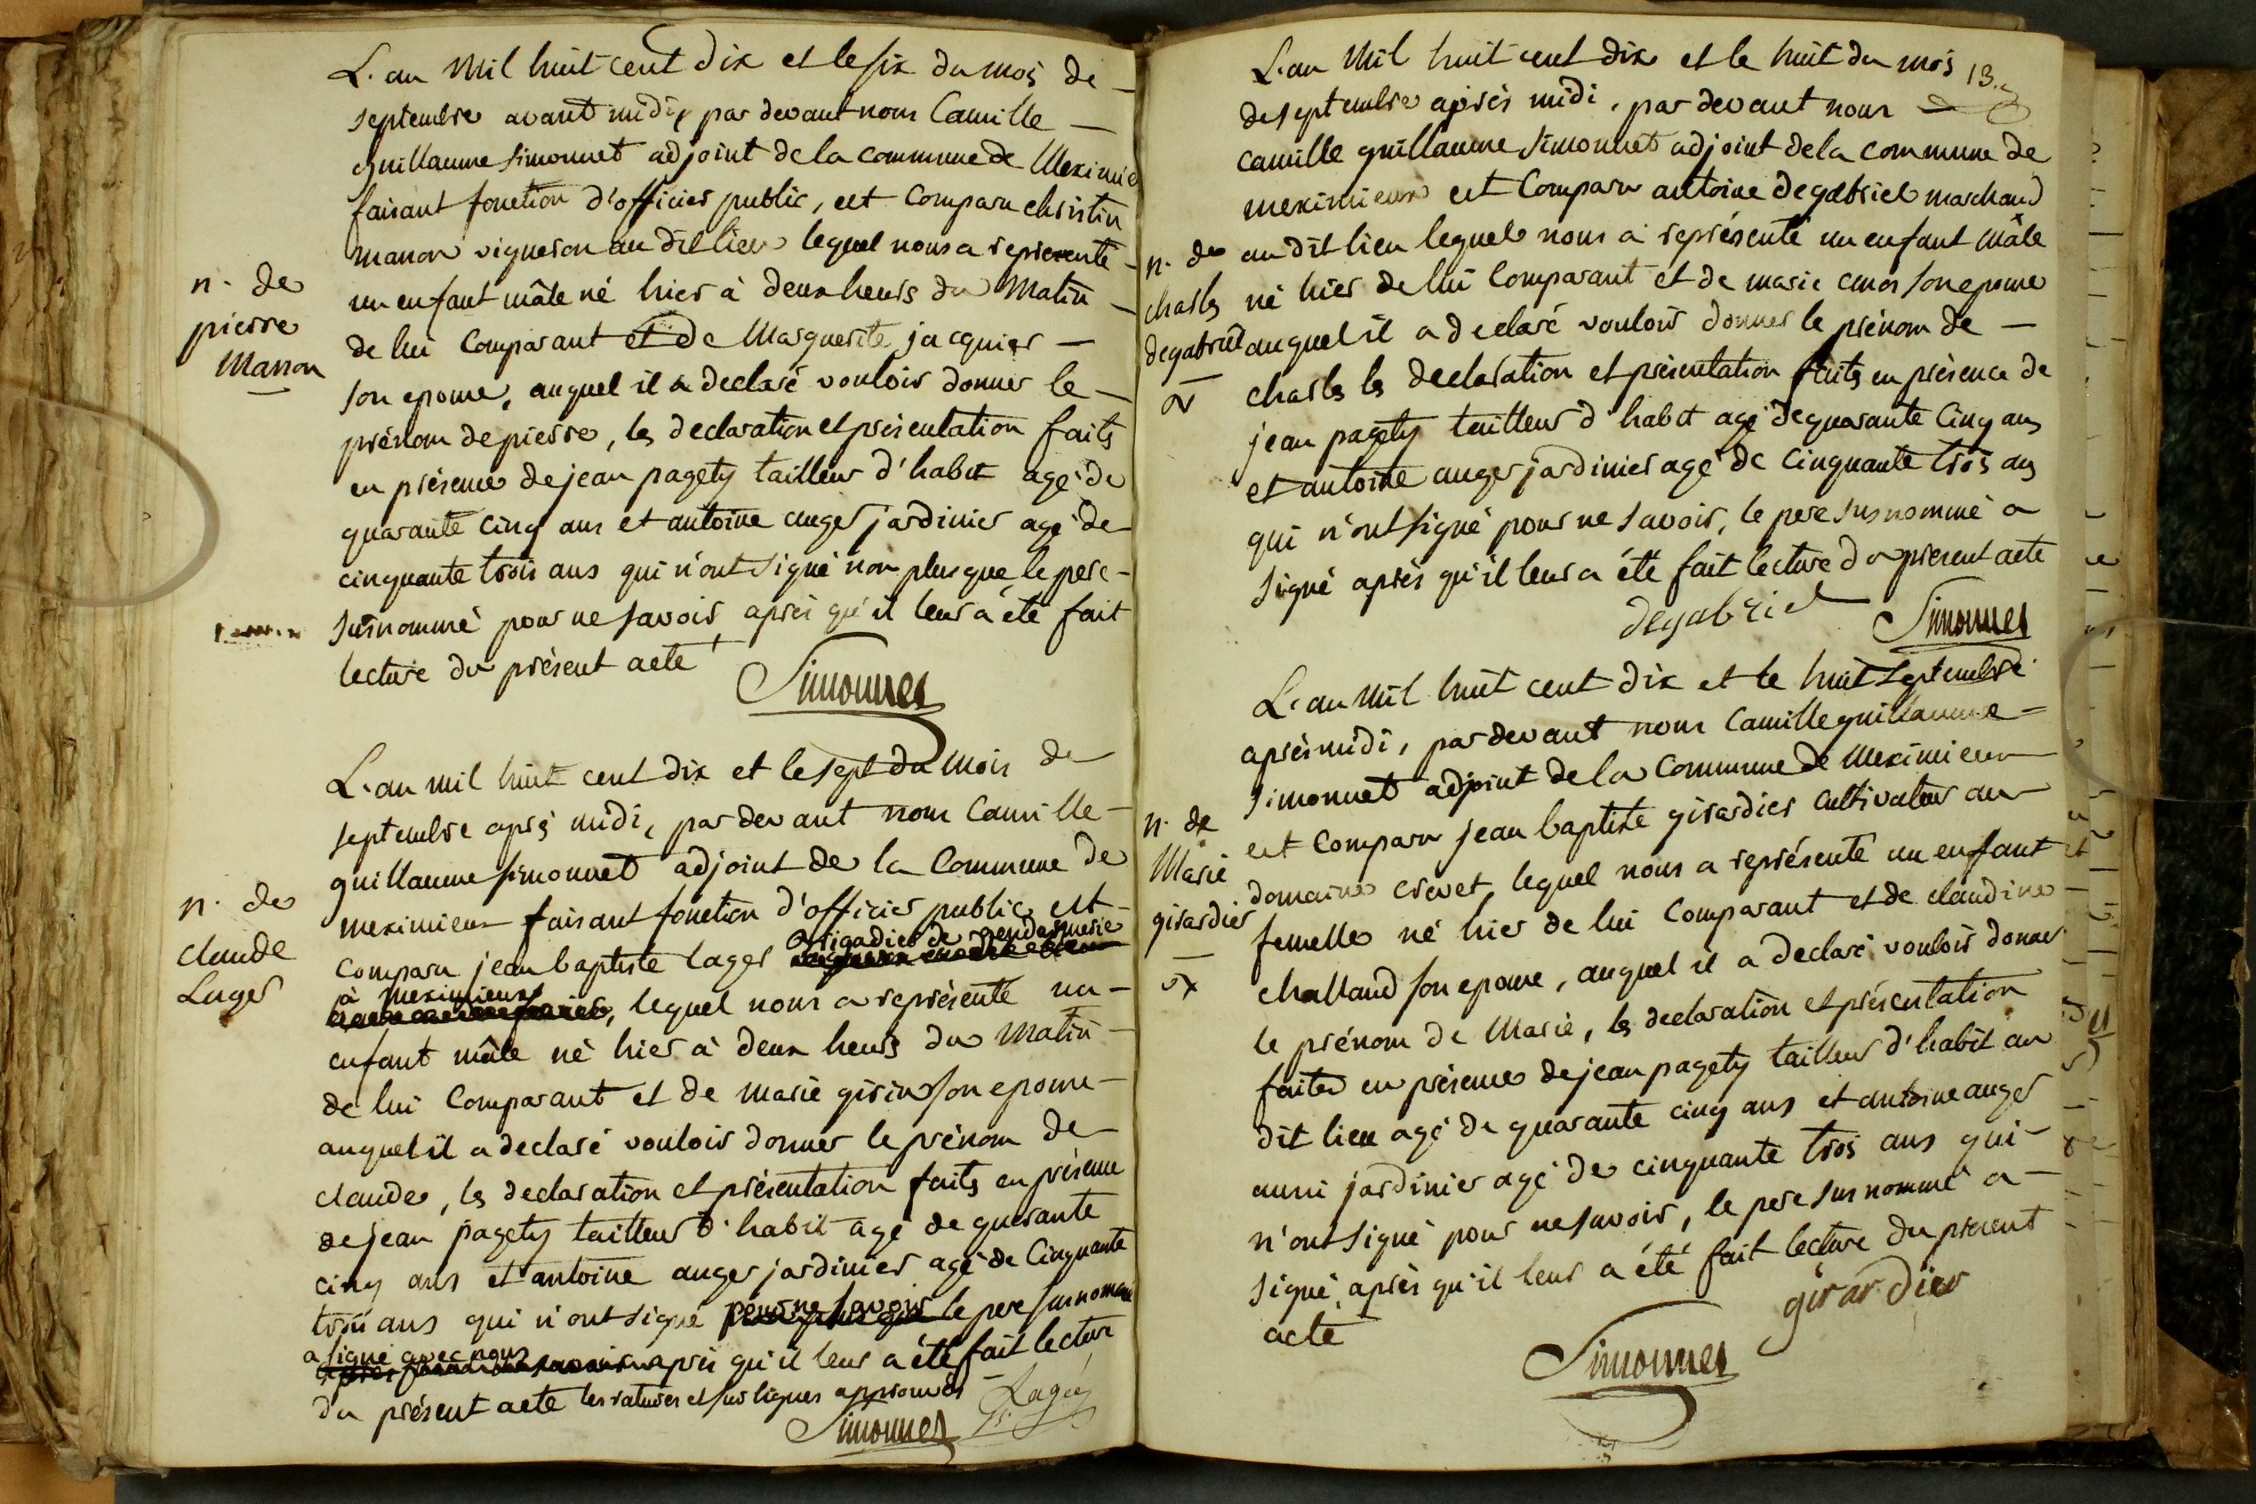 L'an mil huit cent dix et le six du mois de
septembre avant midi, par devant nous Camille
guillaume simonnet adjoint de la commune de Meximie
faisant fonction d'officier public, est comparu christin
manon vigneron au dit lieu lequel nous a representé
n. de
pierre
Manon
un enfant mâle né hier à deux heurs du Matin
de lui Comparant et de Marguerite jacquier
son epouse, auquel il a declaré vouloir donner le
prénom de pierre, les declaration et présentation faits
en présence de jean pagety tailleur d'habit agé de
quarante cinq ans et antoine auger jardinier agé de
cinquante trois ans qui n'ont signé non plus que le pere
susnommé pour ne savoir, après qu'il leur a été fait
lecture du présent acte
Simonnet
L'an mil huit cent dix et le sept du mois de
septembre après midi, par devant nous Camille
guillaume simonnet adjoint de la Commune de
n. de
claude
Lager
meximieux faisant fonction d'officier public, est
comparu jean baptiste lager brigadier de gendarmerie
à meximieux, lequel nous a représenté un
enfant mâle né hier à deux heurs du Matin
de lui Comparant et de marie girin son epouse
auquel il a declaré vouloir donner le prénom de
claude, les declaration et présentation faits en présence
de jean pagety tailleur d'habit agé de quarante
cinq ans et antoine auger jardinier agé de Cinquante
trois ans qui n'ont signé pour ne savoir le pere susnommé
a signé avec nous après qu'il leur a été fait lecture
du présent acte les ratures et sur lignes approuvés
Simonnet
13.
L'an mil huit cent dix et le huit du mois
de septembre après midi, par devant nous
camille guillaume simonnet adjoint de la commune de
meximieux est Comparu antoine degabriel marchand
n. de
charles
degabriel
au dit lieu lequel nous a représenté un enfant mâle
né hier de lui Comparant et de marie son epouse
auquel il a declaré vouloir donner le prénom de
charles les declaration et présentation faits en présence de
jean pagety tailleur d'habit agé de quarante Cinq ans
et antoine auger jardinier agé de cinquante trois ans
qui n'ont signé pour ne savoir, le pere susnommé a
signé après qu'il leur a été fait lecture du present acte
degabriel
Simonnet
L'an mil huit cent dix et le huit septembre
après midi, par devant nous Camille guillaume
simonnet adjoint de la Commune de Meximieux
n. de
Marie
girardier
est Comparu jean baptiste girardier cultivateur au
domaine crevet, lequel nous a représenté un enfant
femelle né hier de lui Comparant et de claudine
challand son epouse, auquel il a declaré vouloir donner
le prénom de Marie, les declaration et présentation
faites en présence de jean pagety tailleur d'habit au
dit lieu agé de quarante cinq ans et antoine auger
aussi jardinier agé de cinquante trois ans qui
n'ont signé pour ne savoir, le pere sus nommé a
signé, après qu'il leur a été fait lecture du present
acte
girardier
Simonnet